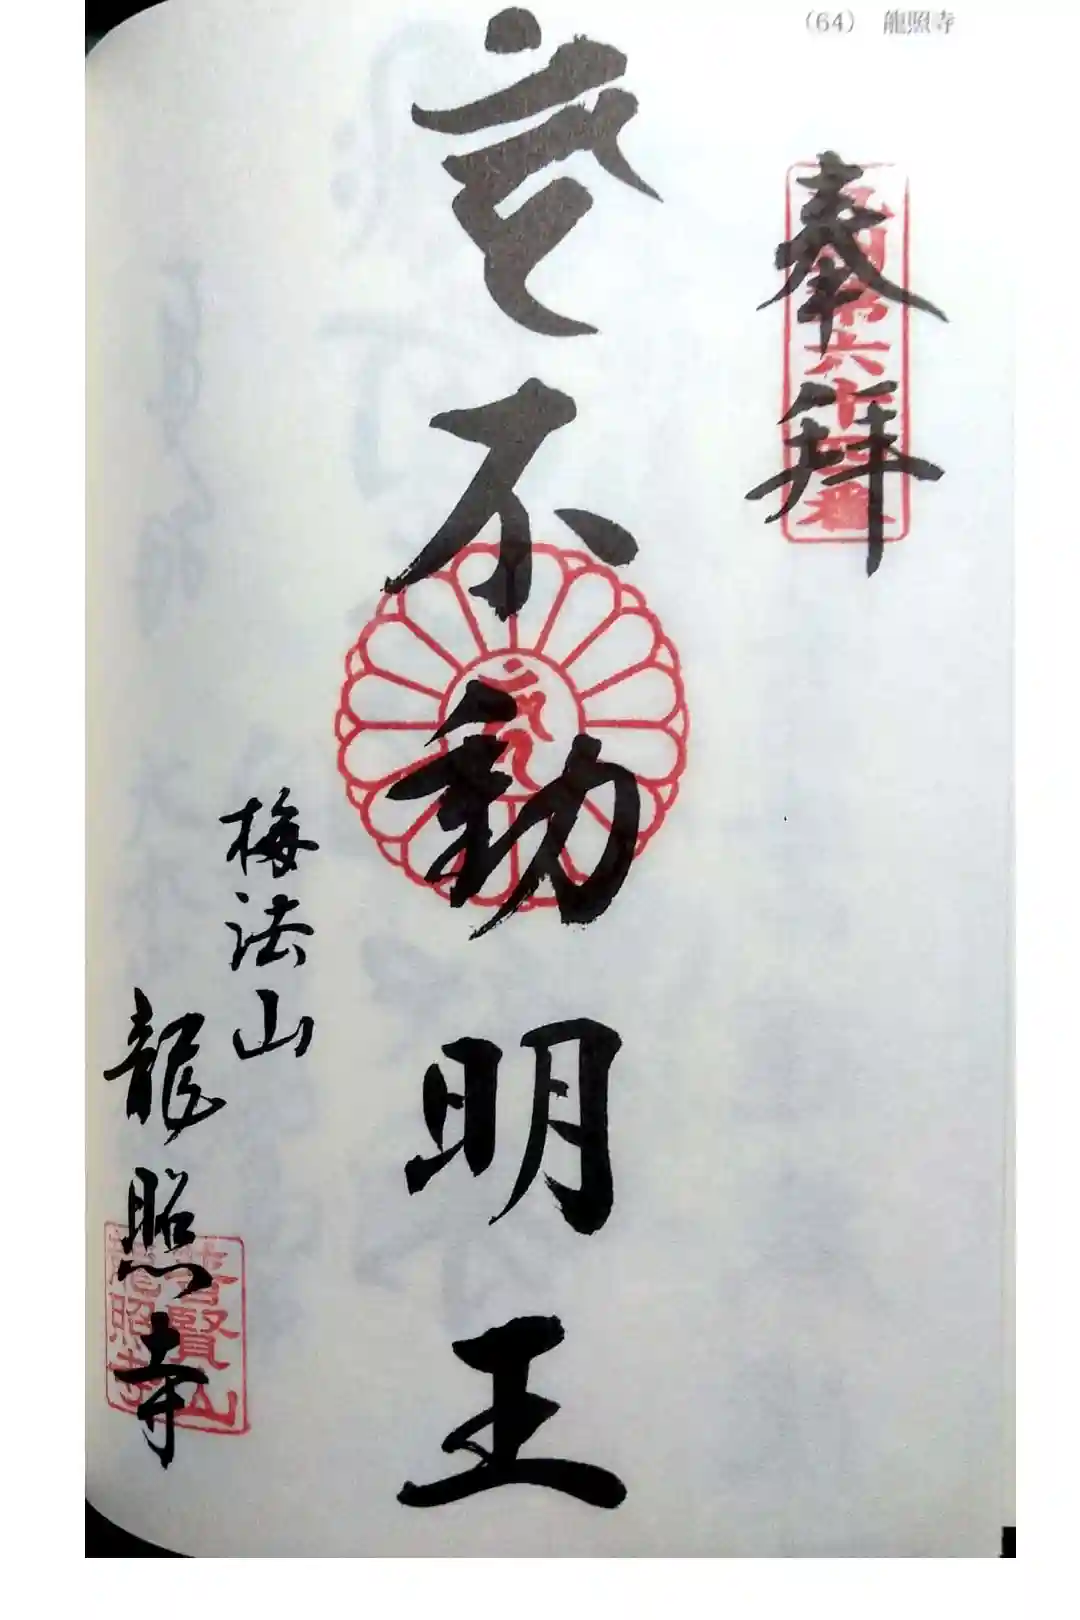 (64) 龍照寺
奉拝
九州第六十四番
不動明王
梅法山
龍照寺
普賢山
龍照寺